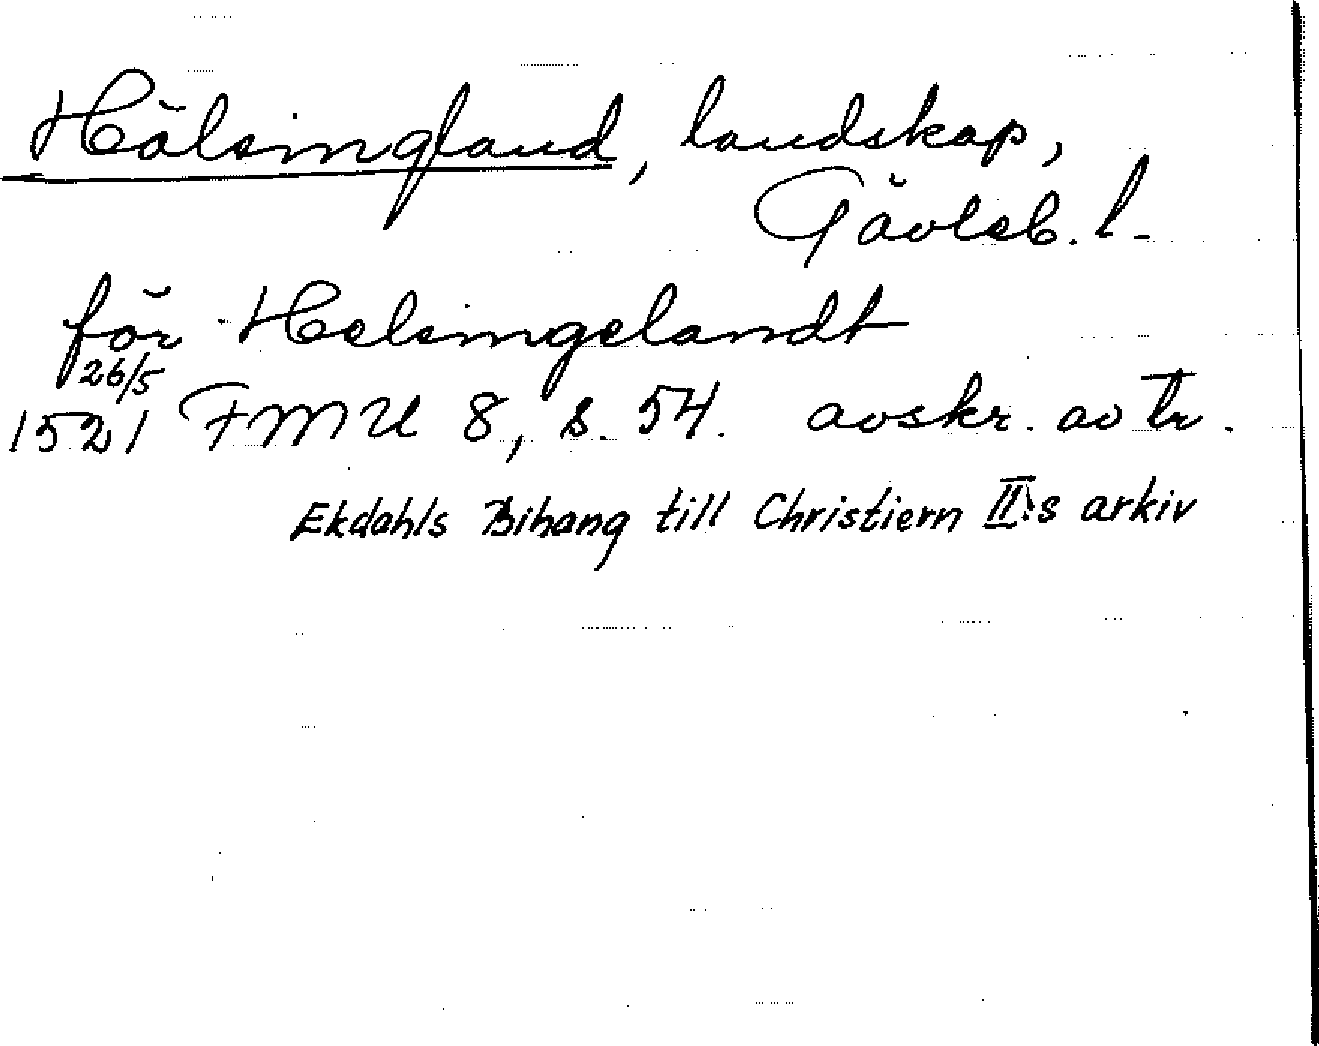 Hälsingland, landskap,
Gävleb. l.
för Helsingelandt
26/5
1521 FMU 8, s. 54. avskr. av tr.
Ekdahls Bihang till Christiern II:s arkiv